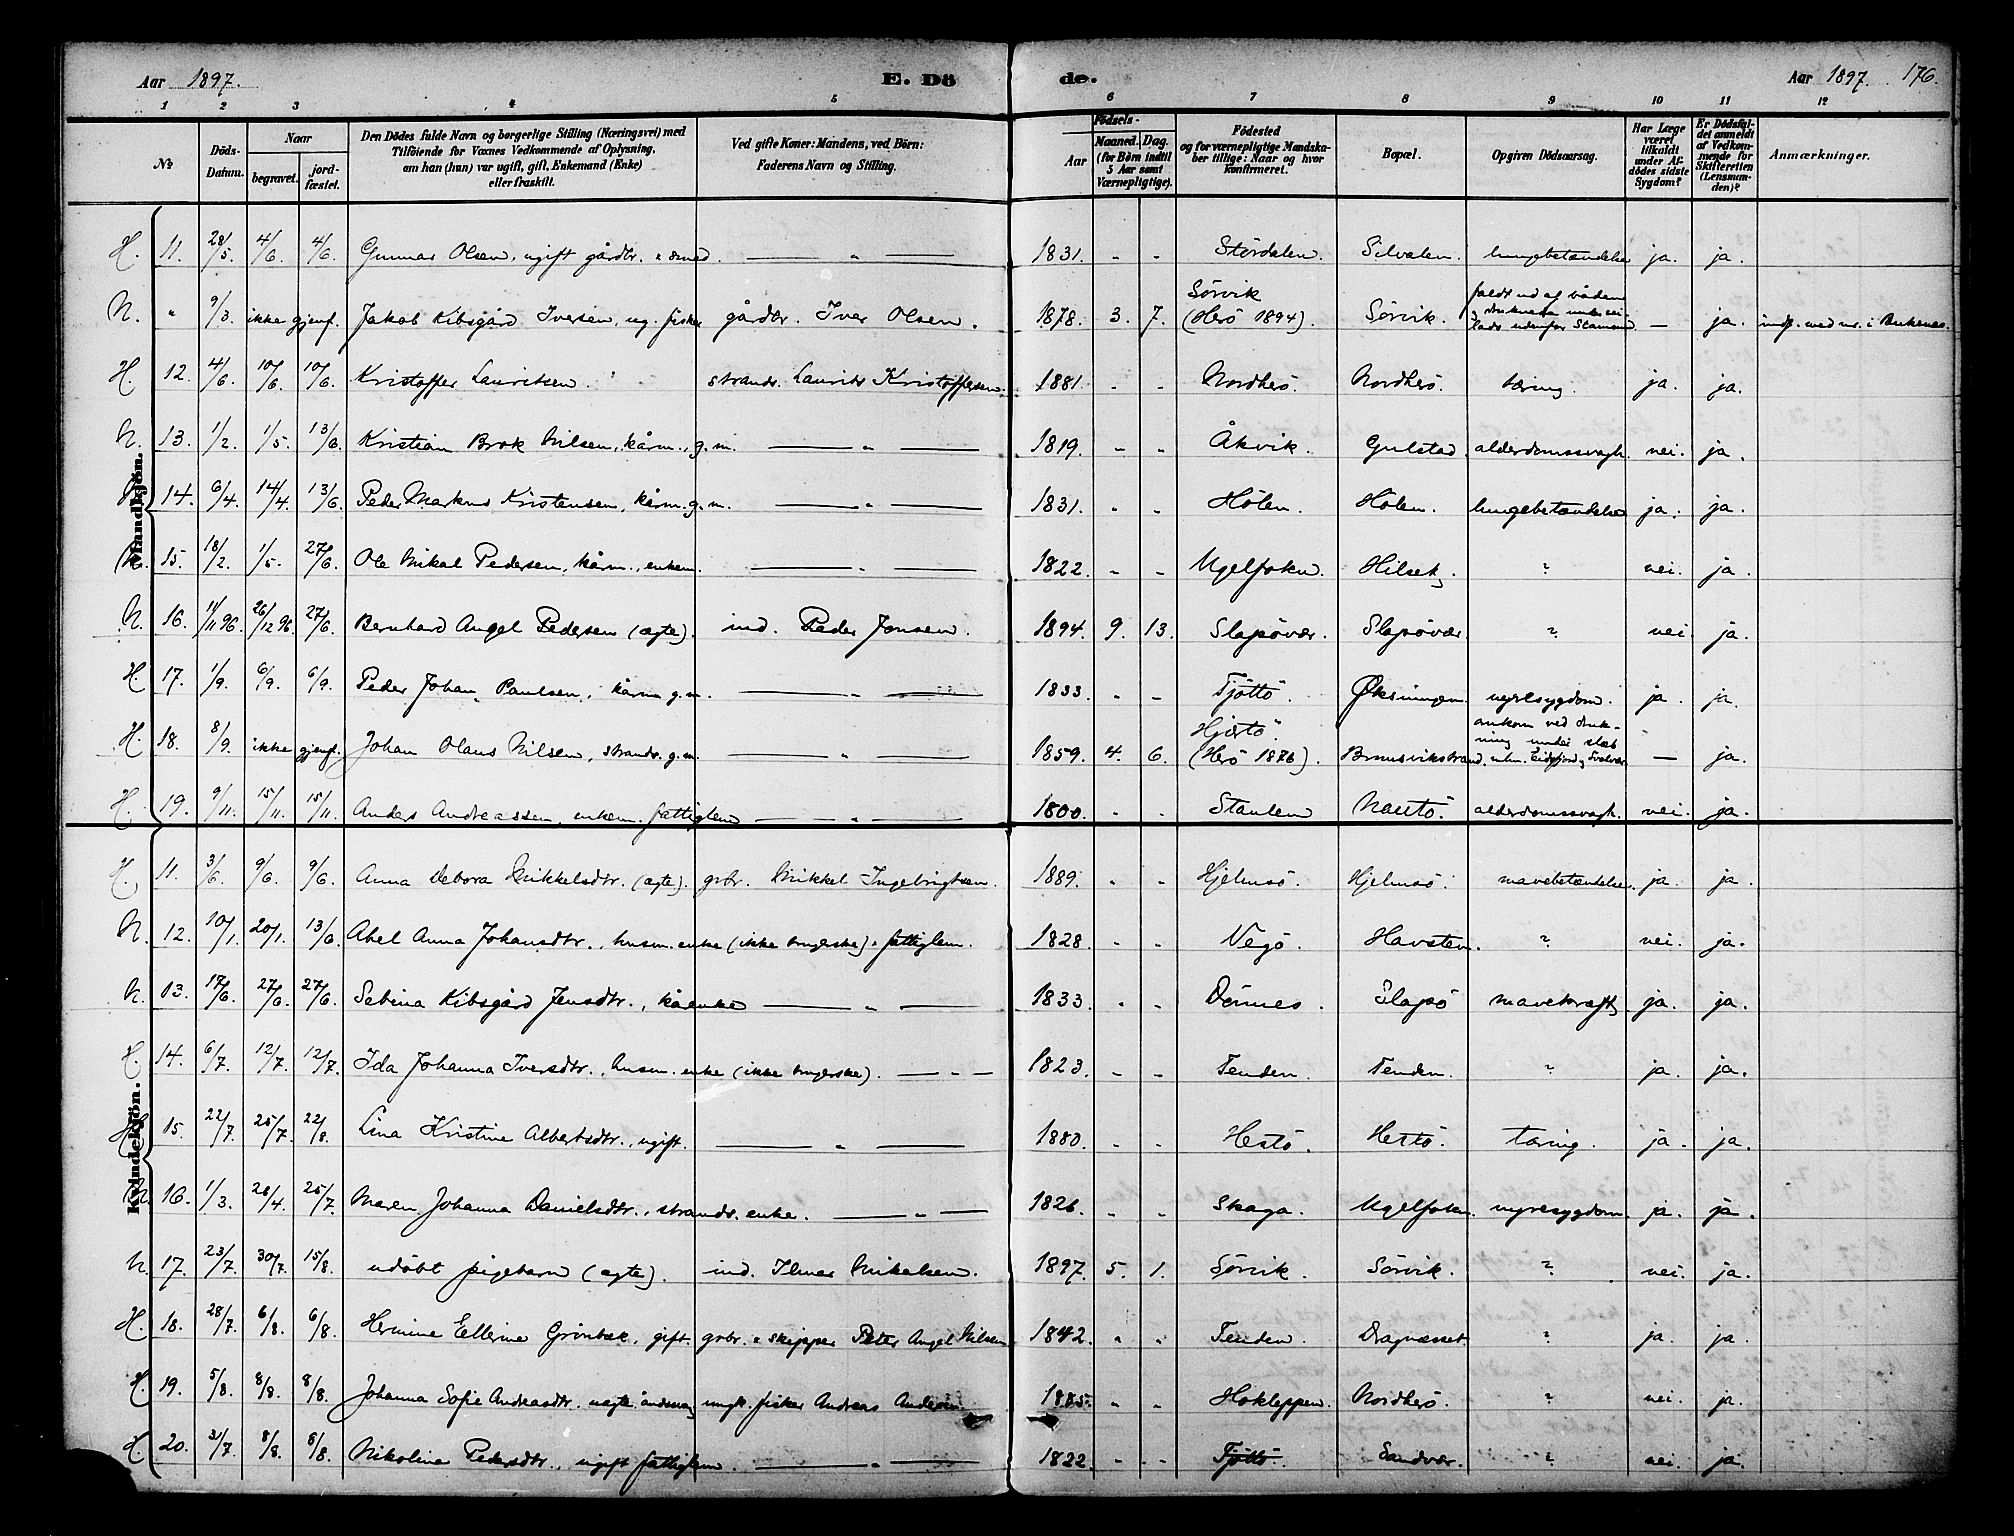 Aar 1897. E. Dö de. Aar 1897. 176.
1 2 3 4 5 6 7 8 9 10 11 12
№ Döds-Datum. Naar begravet. jord-fæstet. Den Dödes fulde Navn og borgerlige Stilling (Næringsvei) med Tilföiende for Voxnes Vedkommende af Oplysning, om han (hun) var ugift, gift, Enkemand (Enke) eller fraskilt. Ved gifte Koner: Mandens, ved Börn: Faderens Navn og Stilling. Födsels- Aar Maaned. Dag. (for Börn indtil 5 Aar samt Værnepligtige). Födested og for værnepligtige Mandskaber tillige: Naar og hvor konfirmeret. Bopæl. Opgiven Dödsaarsag. Har Læge været tilkaldt under Afdödes sidste Sygdom? Er Dödsfaldet anmeldt af Vedkommende for Skifteretten (Lensmanden)? Anmærkninger.
Mandkjön.
H. 11. 28/5. 4/6. 4/6. Gunnar Olsen, ugift gårdbr. & smed. — " — 1831. " " Stördalen. Silvalen. lungebetændelse ja. ja.
N. " 9/3. ikke gjenf. Jakob Kibsgård Iversen, ug. fisker gårdbr. Iver Olsen. 1878. 3. 7. Sörvik (Herö 1894). Sörvik. faldt ud af båden — ja. indf. med nr. i
H. 12. 4/6. 10/6. 10/6. Kristoffer Lauritsen. strands. Laurits Kristoffersen. 1881. " " Nordherö. Nordherö. tæring. ja. ja.
N. 13. 1/2. 1/5. 13/6. Kristian Brok Nilsen, kårm., g.m. — " — 1819. " " Åkvik. Gulstad. alderdomssvagh. nei. ja.
N. 14. 6/4. 14/4. 13/6. Peder Markus Kristensen, kårm. g.m. — " — 1831. " " Hölen. Hölen. lungebetændelse ja. ja.
N. 15. 18/2. 1/5. 27/6. Ole Mikal Pedersen, kårm., enkem. — " — 1822. " " Ugelfoten. Hilset. ? nei. ja.
N. 16. 11/11 96. 26/12 96. 27/6. Bernhard Angel Pedersen (ægte). ind. Peder Jonsen. 1894. 9. 13. Slapövær. Slapövær ? nei ja.
H. 17. 1/9. 6/9. 6/9. Peder Johan Paulsen, kårm g.m. — " — 1833 " " Tjöttö. Øksningen nyresygdom. ja. ja.
H. 18. 8/9. ikke gjenf. Johan Olaus Nilsen, strands. g.m. — " — 1859. 4. 6. Hjertö. (Herö 1876). Brunsvikstrand. omkom ved drukning under — ja.
H. 19. 9/11. 15/11. 15/11. Anders Andreassen, enkem. fattiglem — " — 1800. " " Staulen Nautö. alderdomssvagh. nei. ja.
Kvindekjön.
H. 11. 3/6. 9/6. 9/6. Anna Debora Mikkelsdtr. (ægte). grbr. Mikkel Ingebrigtsen. 1889. " " Hjelmsö. Hjelmsö. mavebetændelse. ja. ja.
N. 12. 10/1. 20/1. 13/6. Abel Anna Johansdtr., husm. enke (ikke brugerske) & fattiglem. 1828. " " Vegö. Havsten. ? nei. ja.
N. 13. 17/6. 27/6. 27/6. Sebina Kibsgård Jensdtr., kårenke — " — 1833. " " Dönnes. Slapö mavekræft ja. ja.
H. 14. 6/7. 12/7. 12/7. Ida Johanna Iversdtr., husm. enke (ikke brugerske). — " — 1823. " " Tenden. Tenden. ? ja. ja.
H. 15. 22/7. 25/7. 22/8. Lina Kristine Albertsdtr., ugift. — " — 1880. " " Hestö. Hestö. tæring. ja. ja.
N. 16. 1/3. 28/4. 25/7. Maren Johanna Danielsdtr., strands. enke. — " — 1826. " " Skaga. Ugelfoten. nyresygdom. ja. ja.
N. 17. 23/7. 30/7. 15/8. udöbt pigebarn (ægte). ind. Ilmer Mikalsen. 1897. 5. 1. Sörvik. Sörvik. ? nei. ja.
H. 18. 28/7. 6/8. 6/8. Hermine Ellerine Grönbæk, gift. grbr. & skipper Peter Angel Nilsen 1842. " " Tenden. Dragnæsset ? ja. ja.
H. 19. 5/8. 8/8. 8/8. Johanna Sofie Andreasdtr. uægte, åndssvag ungk. fisker Andreas Andersen 1885. " " Hokleppen. Nordherö. ? nei ja.
H. 20. 31/7. 8/8. 8/8. Nikoline Pedersdtr., ugift fattiglem. — " — 1822. " " Tjöttö. Sandvær. ? nei. ja.